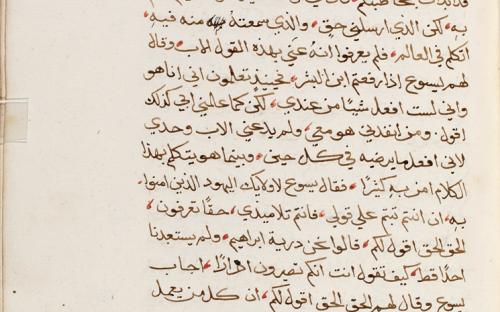 به، لكن الذي ارسلني حق، والذي سمعته منه فيه
اتكلم في العالم، فلم يعرفوا انه عني بهذه القول الاب، وقال
لهم يسوع اذا رفعتم ابن البشر، فحينيذ تعلمون اني انا هو
واني لست افعل شيئا من عندي، لكن كما علمني ابي كذلك
اقول، ومن انفدني هو معي، ولم يدعني الاب وحدي
لاني افعل ما يرضيه في كل حين، وبينما هو يتكلم بهذا
الكلام امن به كثيرا، فقال يسوع لاولايك اليهود الذين امنوا
به، ان انتم ثبتم علي قولي، فانتم تلاميدي، حقا تعرفون،
الحق الحق اقول لكم، قالوا نحن درية ابراهيم، ولم يستعبدنا
احدا قط، كيف تقول انت انكم تصيرون احرارا، اجاب
يسوع وقال لهم الحق الحق اقول لكم، ان كل من يعمل